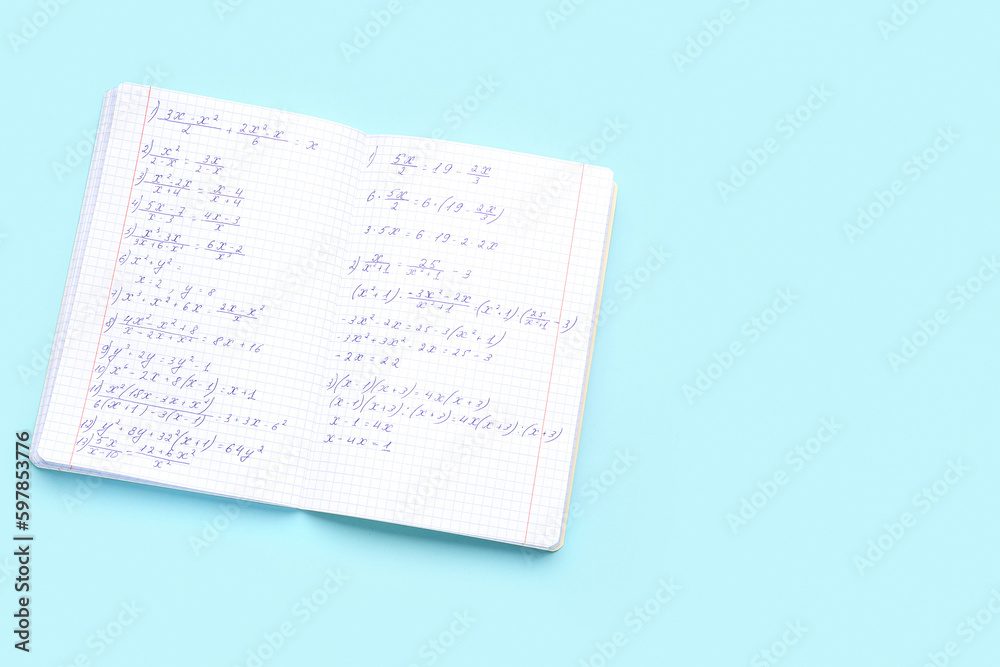 1) (3x - x²)/2 + (2x² - x)/6 = x
2) x²/(2-x) = 3x/(2-x)
3) (x² - 2x)/(x+4) = (x-4)/(x+4)
4) (5x - 7)/(x - 3) = (4x - 3)/x
5) (x³ - 3x)/(3x + 6 - x²) = (6x - 2)/x²
6) x² + y² =
x = 2, y = 8
7) x³ + x² + 6x - (2x - x²)/x
8) (4x² - x² + 8)/(x - 2x + x²) = 8x + 16
9) y³ - 2y = 3y² - 1
10) x² - 2x + 8(x - 1) = x + 1
11) x²(18x - 3x + x²)/(6(x + 1) - 3(x - 1)) = 3 + 3x - 6²
12) y² + 8y + 32²(x + 1) = 64y²
13) 5x/(x - 10) = (12 + 6x²)/x²
1) 5x/2 = 19 - 2x/3
6 · 5x/2 = 6 · (19 - 2x/3)
3 · 5x = 6 · 19 - 2 · 2x
2) x/(x²+1) = 25/(x²+1) - 3
(x² + 1) · (-3x² - 2x)/(x² + 1) = (x² + 1)(25/(x²+1) - 3)
-3x² - 2x = 25 - 3(x² + 1)
-3x² + 3x² - 2x = 25 - 3
-2x = 22
3) (x - 1)(x + 3) = 4x(x + 3)
(x - 1)(x + 3) : (x + 3) = 4x(x + 3) : (x + 3)
x - 1 = 4x
x - 4x = 1
Adobe Stock | #597853776